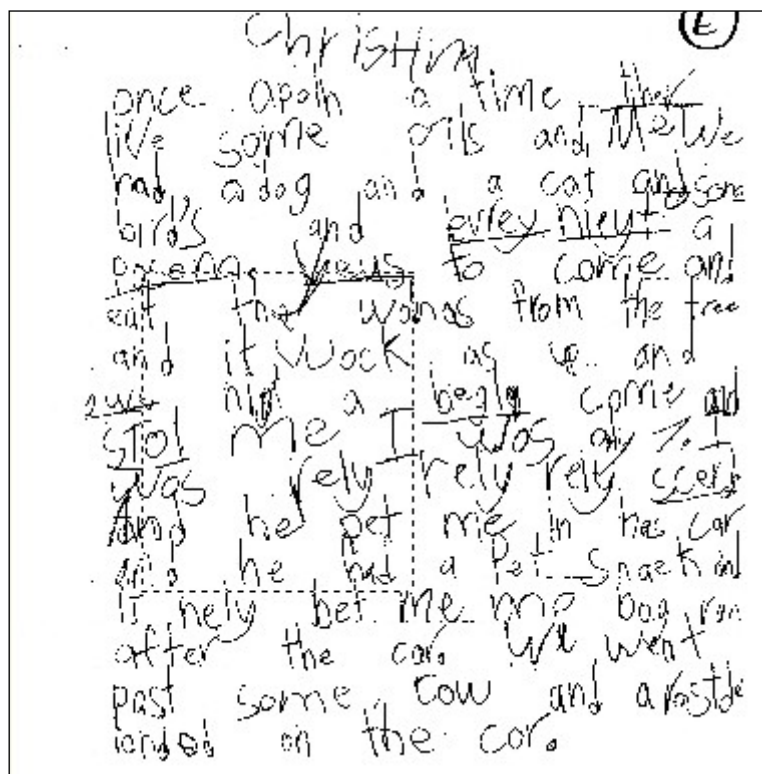 Christina
E
once apoln a time ther
live some orls and Me We
had a dog and a cat and some
bird's and evrey nieyt a
prcean yeus to come and
eat the woncs from the tree
and it wock as up and
a beg come and
stol me I was on 7. I
was rely rely rely scerd
And he pet me in has car
and he had a Pet snaek and
it nely bet me. me bog ran
after the car. We went
past some cow and a rostde
landed on the car.